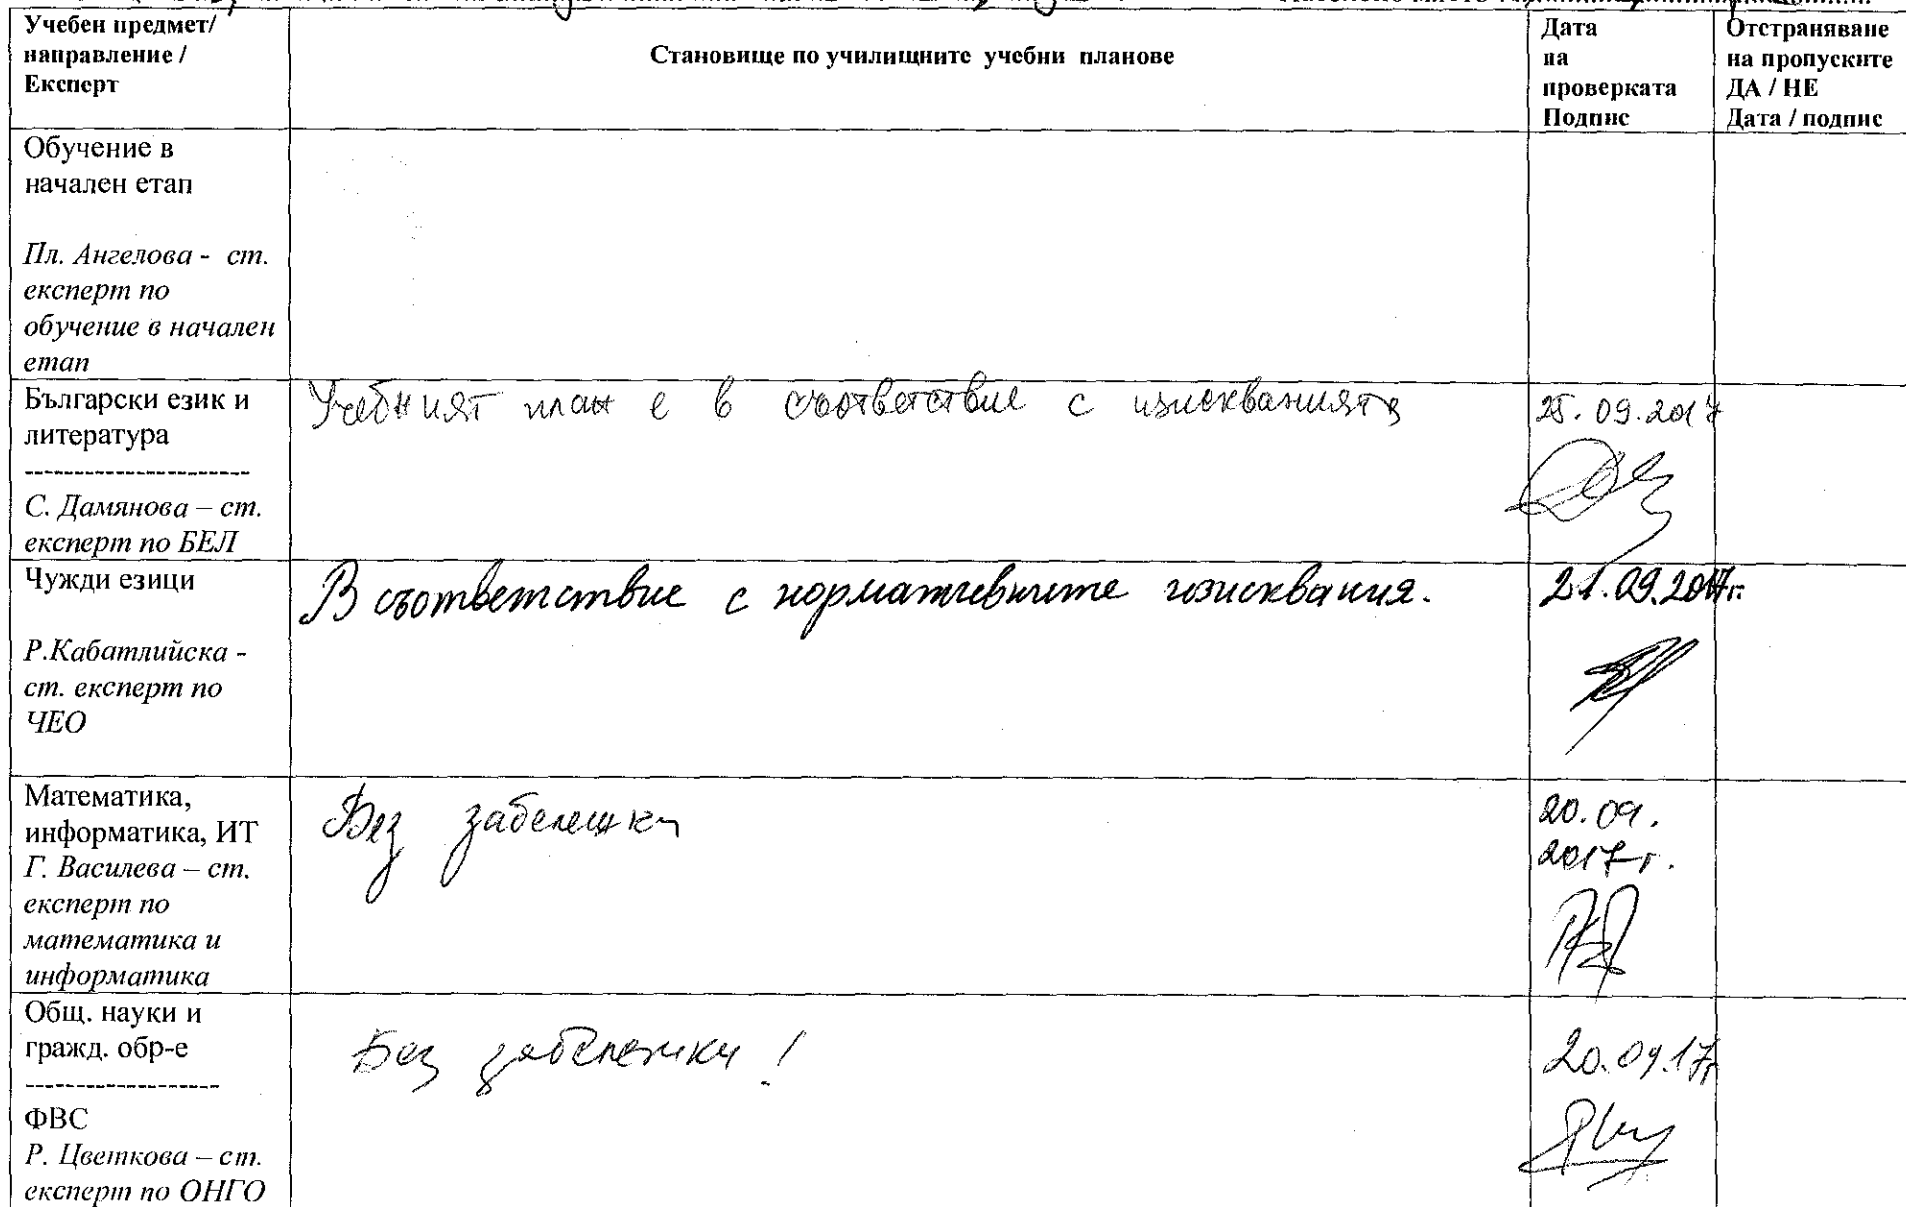 Учебен предмет/
направление /
Експерт
Становище по училищните учебни планове
Дата
на
проверката
Подпис
Отстраняване
на пропуските
ДА / НЕ
Дата / подпис
Обучение в
начален етап
Пл. Ангелова - ст.
експерт по
обучение в начален
етап
Български език и
литература
----------------------
С. Дамянова – ст.
експерт по БЕЛ
Учебният план е в съответствие с изискванията
25.09.2017
Чужди езици
Р.Кабатлийска -
ст. експерт по
ЧЕО
В съответствие с нормативните изисквания.
21.09.2017г.
Математика,
информатика, ИТ
Г. Василева – ст.
експерт по
математика и
информатика
Без забележки
20.09.
2017 г.
Общ. науки и
гражд. обр-е
-------------------
ФВС
Р. Цветкова – ст.
експерт по ОНГО
Без забележки!
20.09.17г